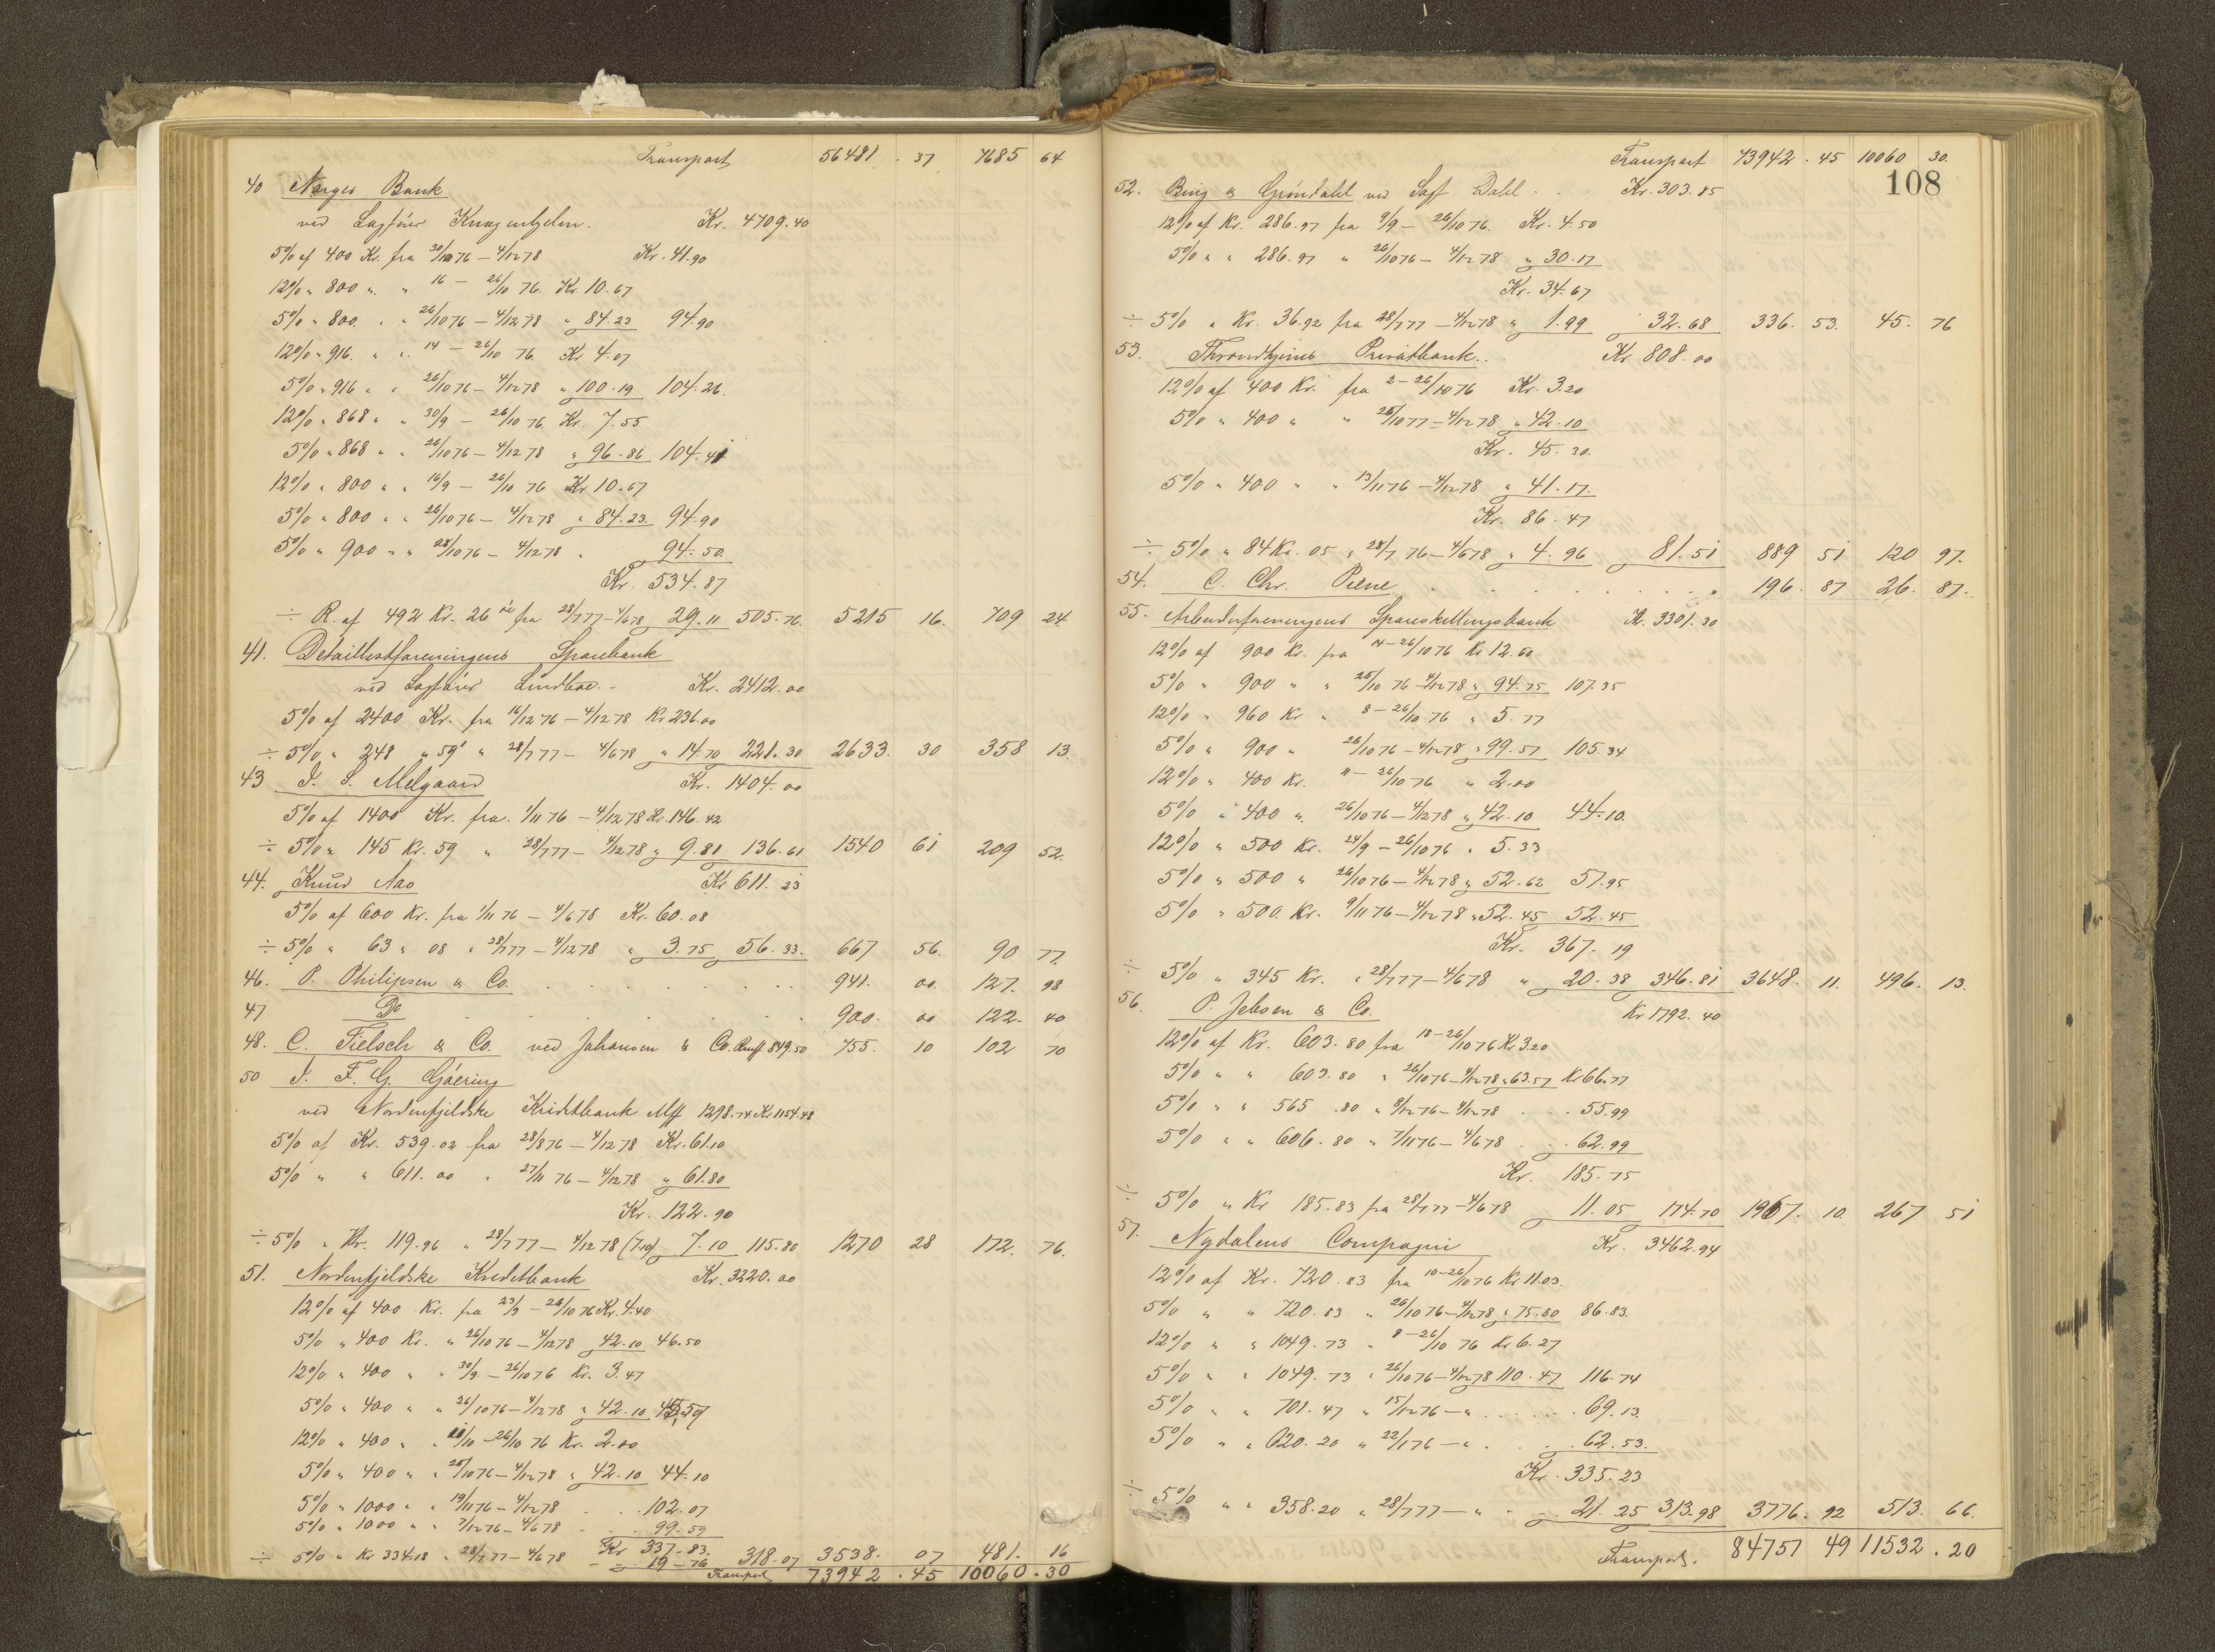 Transport 56481 . 37 7685 64
40 Norges Bank
ved Sagfører Knagenhjelm. Kr. 4709.40
5% af 400 Kr. fra 30/10 76 – 4/12 78 Kr. 41.90
12% " 800 " " 16 – 26/10 76. Kr 10.67
5% " 800. " " 26/10 76 – 4/12 78 " 84.23 94.90
12% " 916. " " 14 – 26/10 76. Kr 4.07
5% " 916 " " 26/10 76 – 4/12 78 " 100.19 104.26.
12% " 868 " " 30/9 – 26/10 76 Kr. 7.55
5% " 868 " " 26/10 76 – 4/12 78 " 96.86 104.41
12% " 800 " " 16/9 – 26/10 76 Kr 10.67
5% " 800 " " 26/10 76 – 4/12 78 " 84.23. 94.90
5% " 900 " " 28/10 76 – 4/12 78 " 94.50.
Kr. 534.87
÷ R. af 492 Kr. 26 øre fra 28/7 77 – 4/6 78 29.11 505.76. 5215 16. 709 24.
41. Detaillistforeningens Sparebank
ved Sagfører Lindboe. - Kr. 2412.00
5% af 2400 Kr. fra 16/12 76 – 4/12 78 Kr 236.00
÷ 5% " 248 " 59 " 28/7 77 – 4/6 78 " 14.70 221.30 2633. 30 358 13.
43 I. S. Melgaard Kr. 1404.00
5% af 1400 Kr. fra. 1/11 76 – 4/12 78 Kr. 146.42
÷ 5% " 145 Kr. 59 " 28/7 77 – 4/12 78 " 9.81 136.61 1540 61 209 52.
44. Knud Aao Kr 611.23
5% af 600 Kr. fra 1/11 76 – 4/6 78 Kr. 60.08
÷ 5% " 63 " 08 " 28/7 77 – 4/12 78 " 3.75 56.33. 667 56. 90 77.
46. P. Philipsen & Co. 941. 00. 127. 98
47 Do 900. 00 122. 40
48. C. Tielsch & Co. ved Johansen & Co. Rmf 849.50 755. 10 102 70
50 I. F. G. Göering
ved Nordenfjeldske Kreditbank Mf 1298.74 Kr 1154.48
5% af Kr. 539.02 fra 28/8 76 – 4/12 78 Kr. 61.10
5% " " 611.00 " 27/11 76 – 4/12 78 " 61.80
Kr. 122.90
÷ 5% " Kr. 119.96 " 28/7 77 – 4/12 78 (7.10) 7.10 115.80 1270 28 172. 76.
51. Nordenfjeldske Kreditbank Kr. 3220.00
12% af 400 Kr. fra 23/9 – 26/10 76 Kr. 4.40
5% " 400 Kr. " 26/10 76 – 4/12 78 42.10 46.50
12% " 400 " " 30/9 – 26/10 76 Kr. 3.47
5% " 400 " " 26/10 76 – 4/12 78 " 42.10 45.57
12% " 400 " " 11/10 – 26/10 76 Kr. 2.00
5% " 400 " " 26/10 76 – 4/12 78 " 42.10 44.10
5% " 1000 " " 19/11 76 – 4/12 78 . . 102.07
5% " 1000 " " 7/12 76 – 4/6 78 . . 99.59
Kr 337.83.
÷ 5% " Kr 334.18 " 28/7 77 – 4/6 78 " 19 – 76 318.07 3538. 07 481. 16
Transport 73942 . 45 10060 . 30
Transport 73942 . 45 10060 30.
108
52. Bing & Gröndahl ved Sagf Dahl . . Kr. 303.85
12% af Kr. 286.97 fra 9/9 – 26/10 76. Kr. 4.50
5% " " 286.97 " 26/10 76 – 4/12 78 " 30.17
Kr. 34.67
÷ 5% " Kr. 36.92 fra 28/7 77 – 4/12 78 " 1.99 32.68 336. 53. 45. 76
53. Throndhjems Privatbank.. Kr 808.00
12% af 400 Kr. fra 2 – 26/10 76 Kr. 3.20
5% " 400 " " 26/10 77 – 4/12 78 " 42.10
Kr. 45.30.
5% " 400 " " 13/11 76 – 4/12 78 " 41.17.
Kr. 86.47
÷ 5% " 84 Kr. 05 " 28/7 76 – 4/6 78 " 4.96 81.51 889 51 120 97.
54. C. Chr. Piene 196. 87 26. 87.
55. Arbeiderforeningens Spareskillingsbank Kr. 3301.30
12% af 900 Kr. fra 14 – 26/10 76 Kr 12.60
5% " 900 " " 26/10 76 – 4/12 78 " 94.75 107.35
12% " 960 Kr " 8 – 26/10 76 " 5.77
5% " 900 " 26/10 76 – 4/12 78 " 99.57 105.34
12% " 400 Kr. 11 – 26/10 76 " 2.00
5% " 400 " 26/10 76 – 4/12 78 " 42.10 44.10.
12% " 500 Kr. 24/9 – 26/10 76 " 5.33
5% " 500 " 26/10 76 – 4/12 78 " 52.62 57.95
5% " 500. Kr. 9/11 76 – 4/12 78 " 52.45 52.45
Kr. 367.19
÷ 5% " 345 Kr. " 28/7 77 – 4/6 78 " 20.38 346.81 3648. 11. 496. 13.
56. P. Jebsen & Co. Kr 1792.40
12% af Kr. 603.80 fra 18 – 26/10 76 Kr 3.20
5% " " 603.80 " 26/10 76 – 4/12 78 " 63.57 Kr 66.77
5% " " 565.80 " 8/12 76 – 4/12 78 . . 55.99
5% " " 606.80 " 7/11 76 – 4/6 78 . . 62.99
Kr. 185.75
÷ 5% " Kr 185.83 fra 28/7 77 – 4/6 78 11.05 174.70 1967. 10. 267 51
57. Nydalens Compagni Kr. 3462.94
12% af Kr. 720.83 fra 10 – 26/10 76 Kr 11.03.
5% " " 720.83 " 26/10 76 – 4/12 78 " 75.80 86.83.
12% " " 1049.73 " 8 – 26/10 76 Kr 6.27
5% " " 1049.73 " 26/10 76 – 4/12 78 110.47 116.74
5% " " 701.47 " 15/12 76 – " . . . . . 69.13.
5% " " 620.20 " 22/1 76 – " . . . 62.53.
Kr. 335.23
÷ 5% " " 358.20 " 28/7 77 – " - 21.25 313.98 3776. 92 513. 66.
Transport. 84757 49 11532 . 20